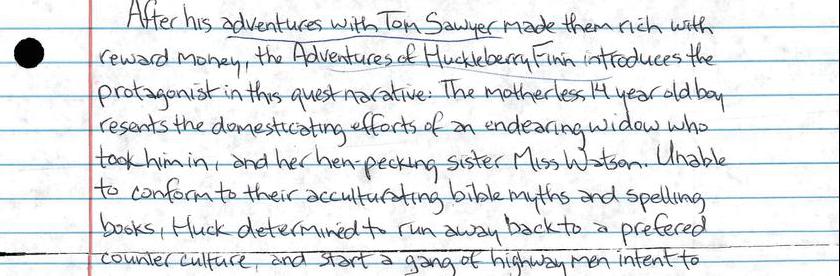 After his adventures with Tom Sawyer made them rich with
reward money, the Adventures of Huckleberry Finn introduces the
protagonist in this quest narative: The motherless 14 year old boy
resents the domesticating efforts of an endearing widow who
took him in, and her hen-pecking sister Miss Watson. Unable
to conform to their acculturating bible myths and spelling
books, Huck determined to run away back to a prefered
counter culture, and start a gang of highway men intent to